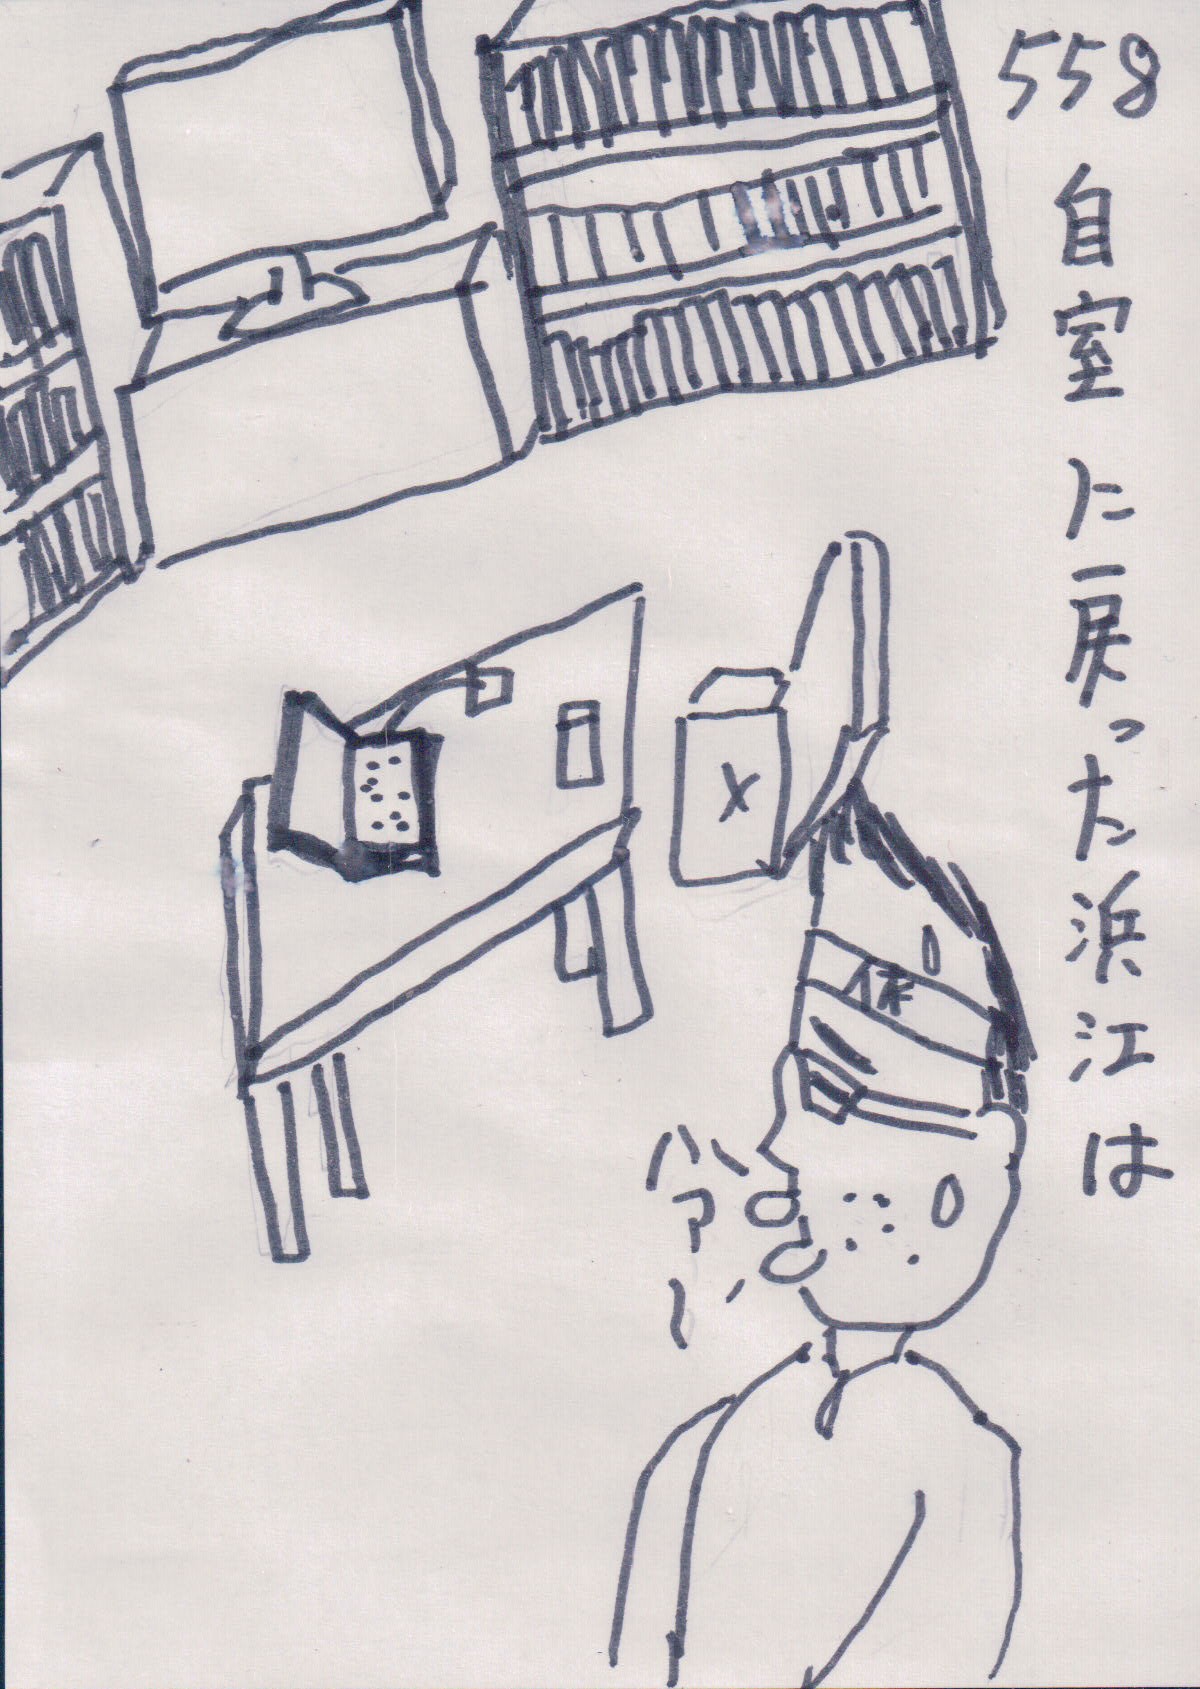 558 自室に戻った浜江は
ハァー